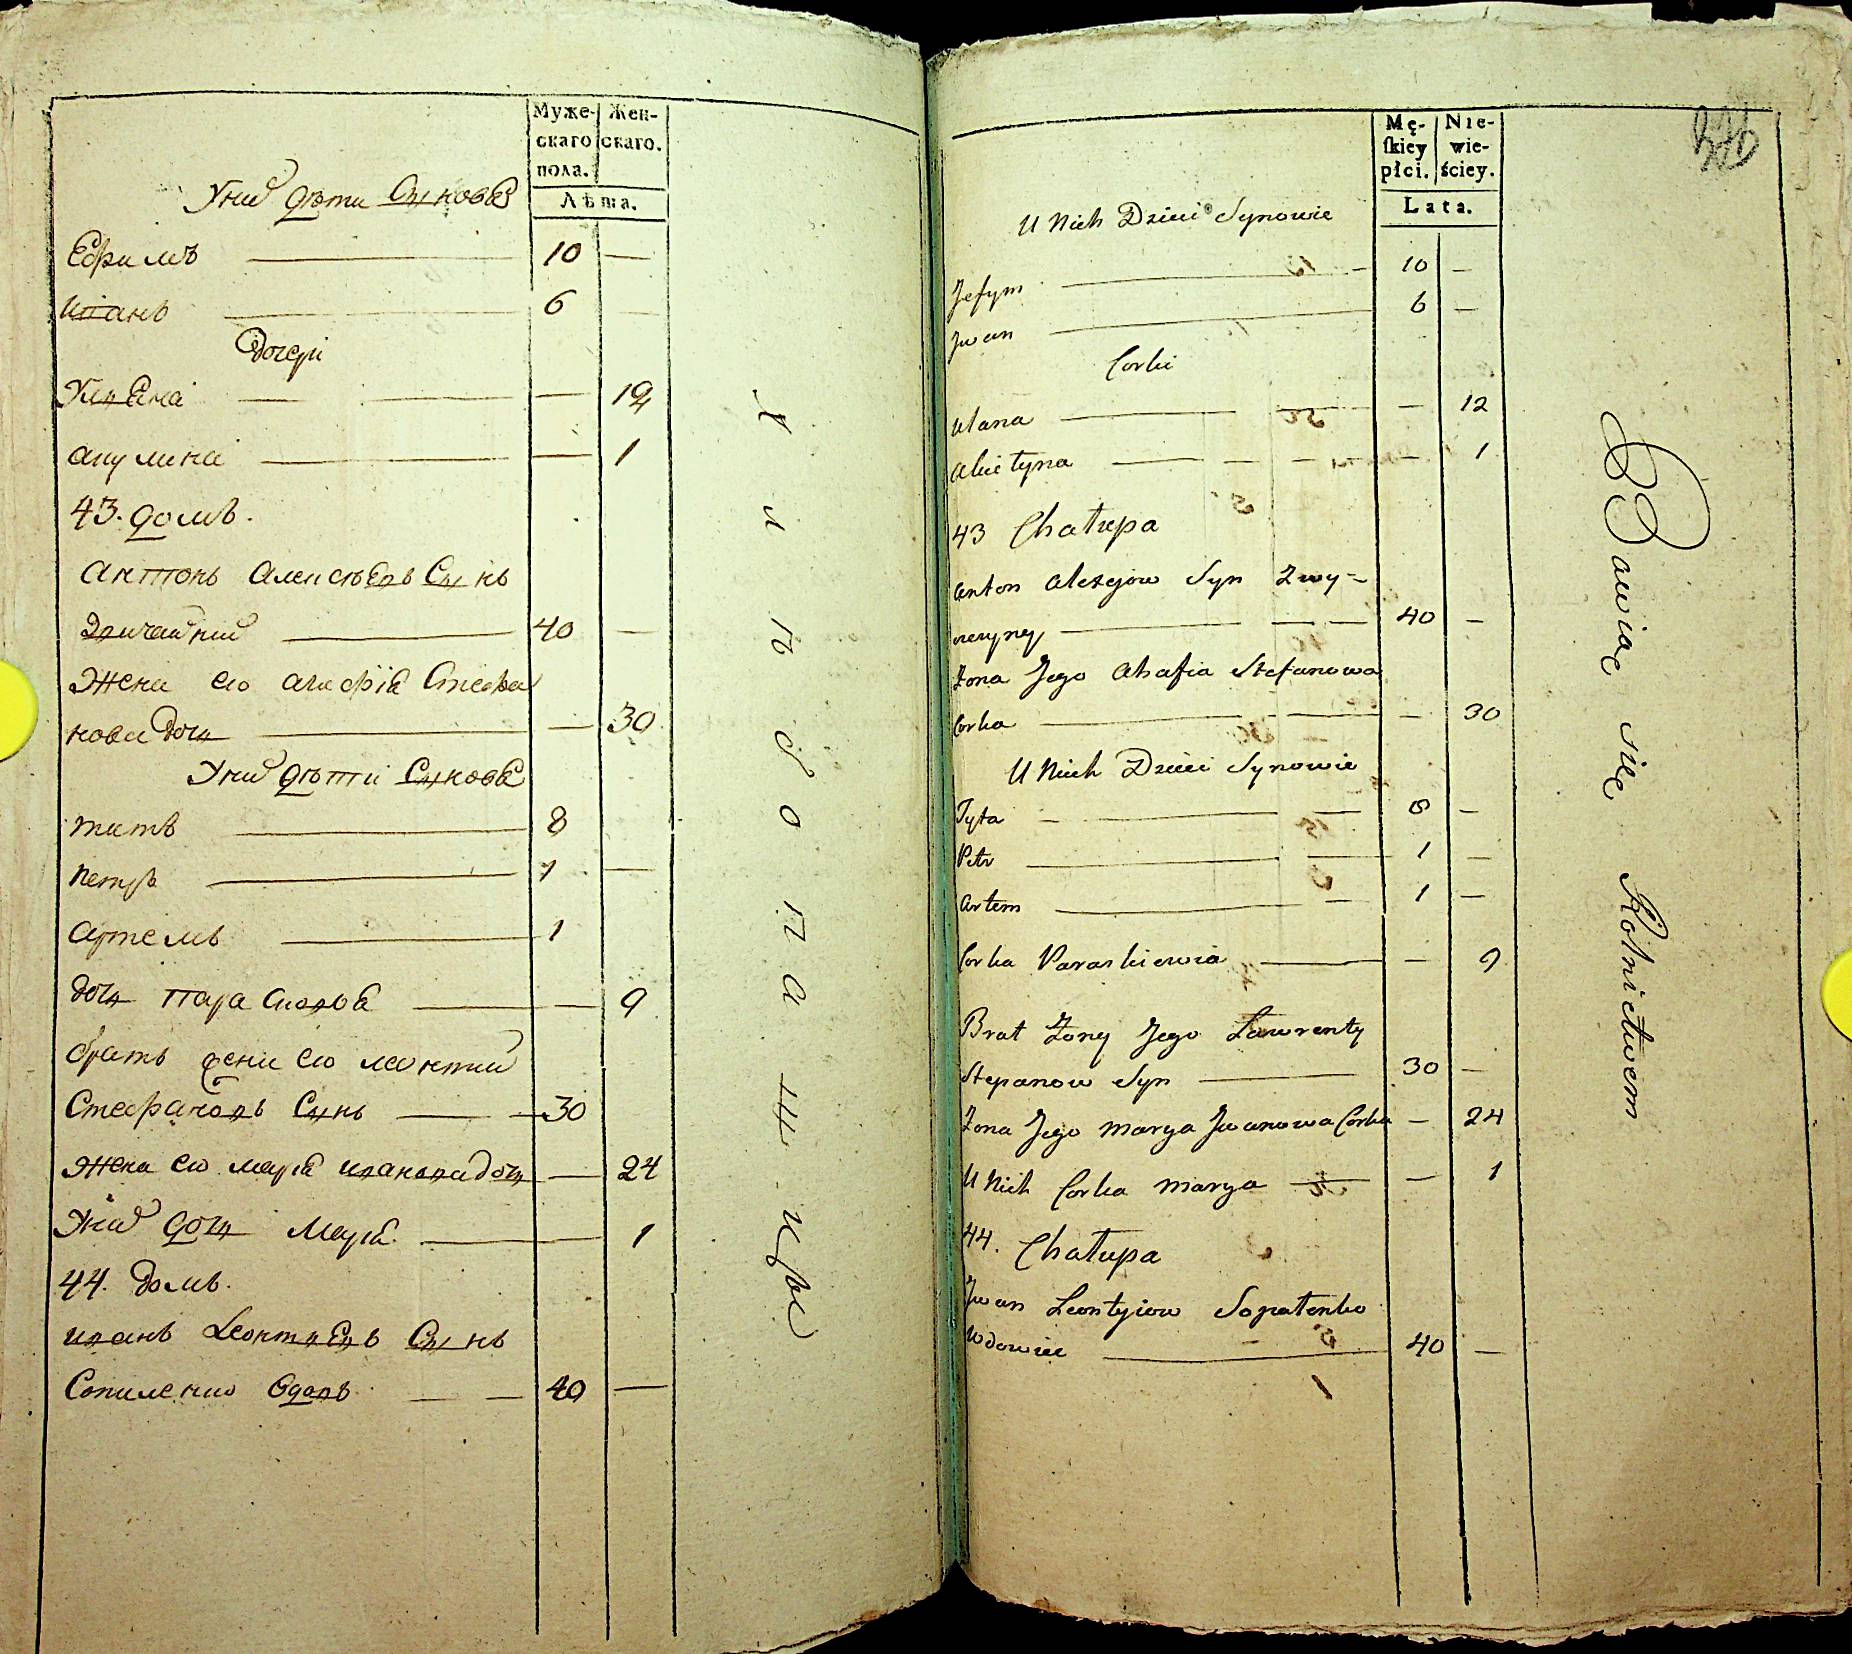 Муже-
скаго
пола.
Жен-
скаго.
Лѣта.
Уних дѣти Синовя
Ефимъ 10 —
иванъ 6
дочери
Уляна — 12
акулина — 1
43. домъ.
антонъ алексѣевъ Синъ
звичайний 40 —
Жена его агафия Стефа
нова дочь — 30
Уних дѣти Синовя
титъ 8
петръ 1 —
артемъ 1
дочь парасковя — 9
братъ жени его леонтий
Стефановъ Синъ 30
Жена его мария иванова дочь — 24
Уних дочь Мария 1
44. домъ.
иванъ Леонтиевъ Синъ
Сопиленко вдовъ 40 —
хлѣбопашци
Mę-
skiey
płci.
Nie-
wie-
ściey.
Lata.
U Nich Dzieci Synowie
Jefym 10 —
Jwan 6 —
Corki
Ulana — 12
akietyna — 1
43 Chałupa
anton alexejow Syn Zwy-
czayney 40 —
Żona Jego ahafia Stefanowa
Corka — 30
U Nich Dzieci Synowie
Tyta 8 —
Petr 1 —
artem 1 —
Corka Paraskiewia — 9
Brat Żony Jego Lawrenty
Stepanow Syn 30 —
Żona Jego Marya Jwanowa Corka — 24
U Nich Corka Marya — 1
44. Chałupa
Jwan Leontyiow Sopałenko
Wdowiec 40 —
Bawiąc się Rolnictwem